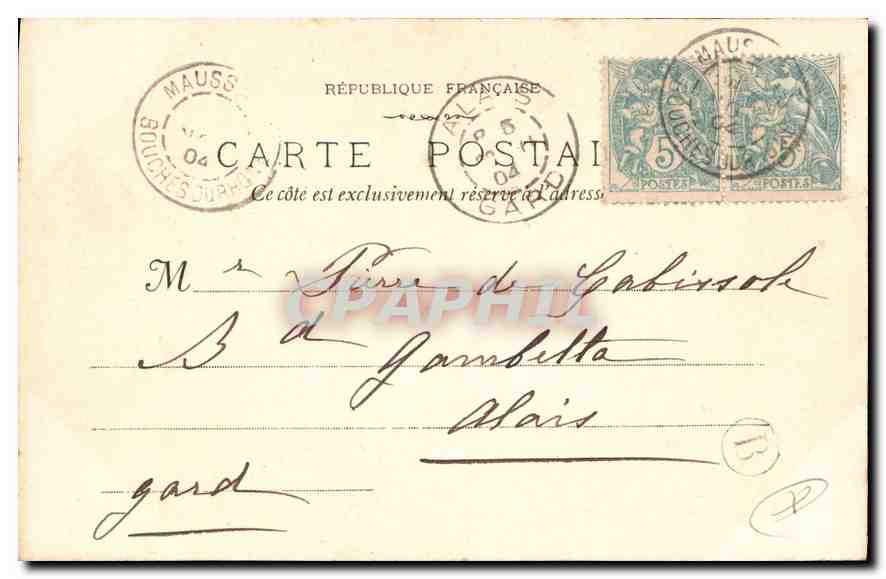 RÉPUBLIQUE FRANÇAISE
CARTE POSTAL
Ce côté est exclusivement réservé à l'adresse
MAUSS
04
BOUCHES DU RHONE
ALAIS
04
GARD
MAUSS
04
BOUCHES DU RHONE
5
POSTES
5
POSTES
Mr Pierre de Gabissole
Bd Gambetta
Alais
gard
B
CPAPHIL